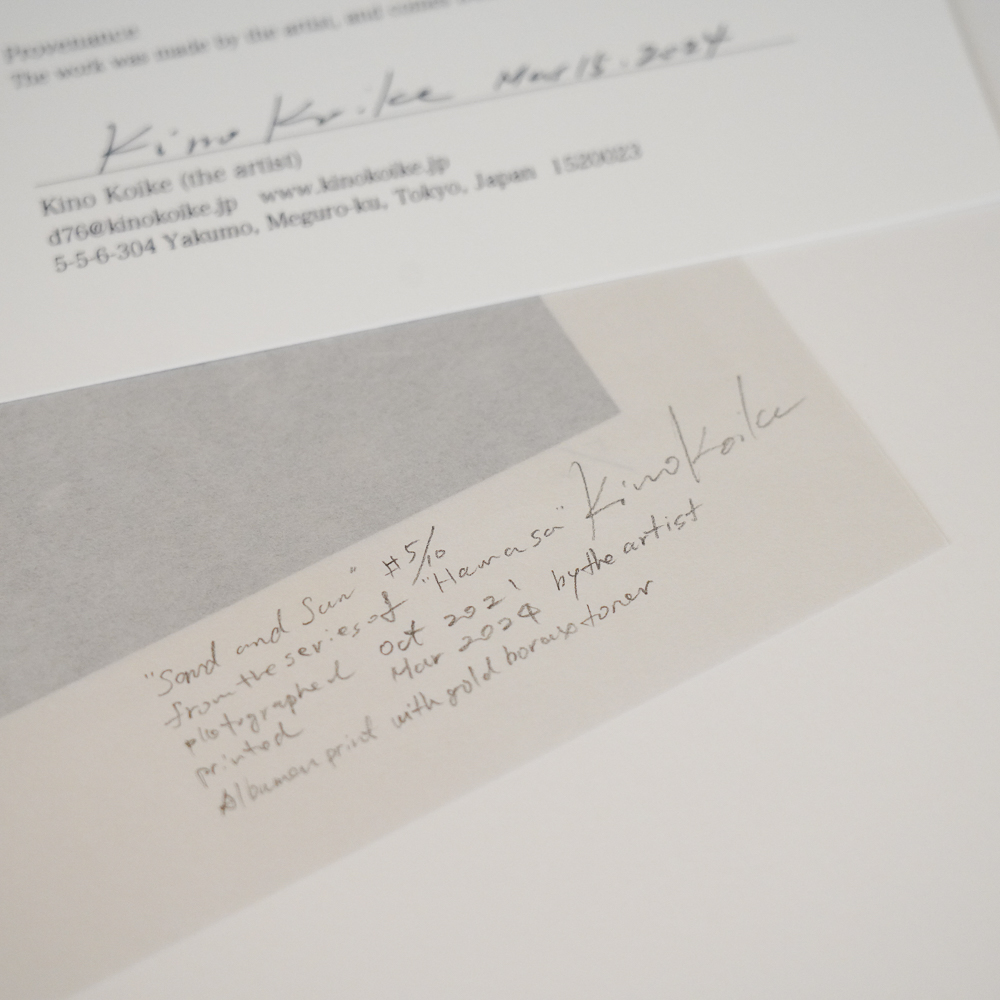 Provenance
The work was made by the artist, and comes
Kino Koike Mar 15. 2024
Kino Koike (the artist)
d76@kinokoike.jp www.kinokoike.jp
5-5-6-304 Yakumo, Meguro-ku, Tokyo, Japan 1520023
"Sand and Sun" #5/10
from the series of "Hamasa" Kino Koike
photographed Oct 2021 by the artist
printed Mar 2024
Albumen print with gold borax toner